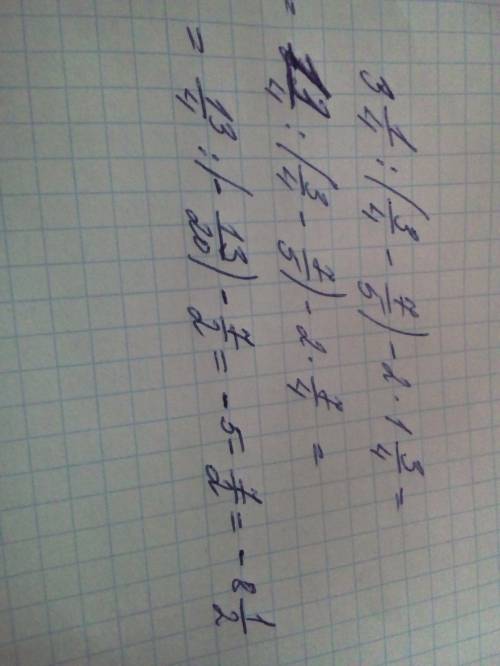 3 1/4 : (3/4 - 7/5) - 2 · 1 3/4 =
= 13/4 : (3/4 - 7/5) - 2 · 7/4 =
= 13/4 : (- 13/20) - 7/2 = - 5 - 7/2 = - 8 1/2